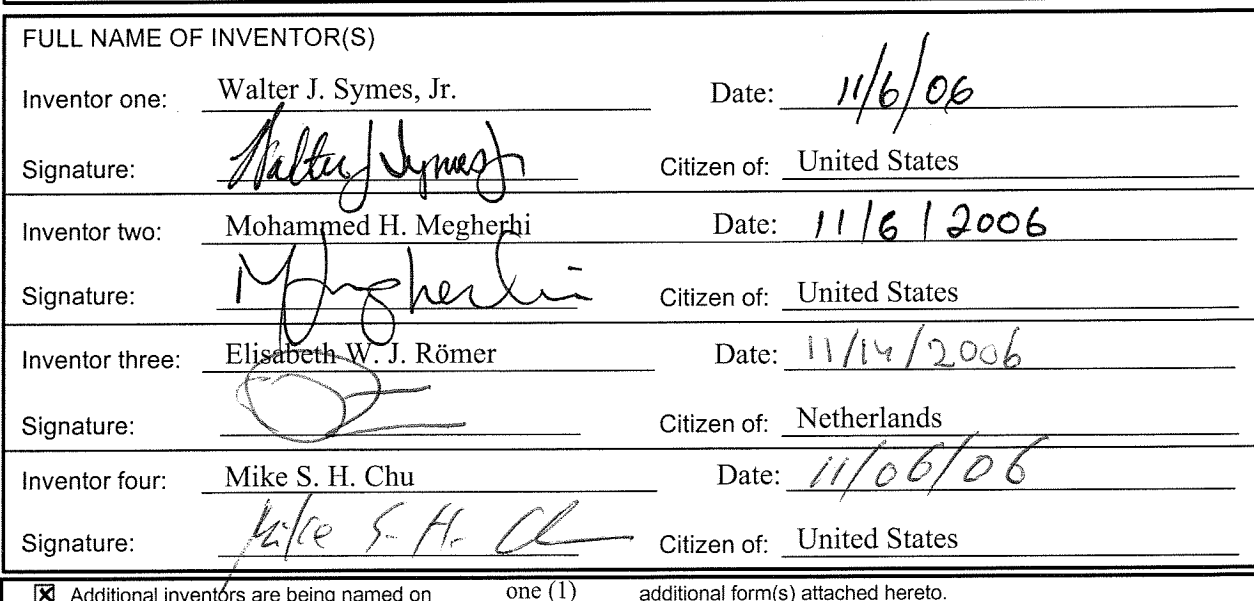 FULL NAME OF INVENTOR(S)
Inventor one: Walter J. Symes, Jr. Date: 11/6/06
Signature: Walter J Symes Jr Citizen of: United States
Inventor two: Mohammed H. Megherhi Date: 11/6/2006
Signature: M Megherhi Citizen of: United States
Inventor three: Elisabeth W. J. Römer Date: 11/14/2006
Signature: Citizen of: Netherlands
Inventor four: Mike S. H. Chu Date: 11/06/06
Signature: Mike S. H. Chu Citizen of: United States
☒ Additional inventors are being named on one (1) additional form(s) attached hereto.